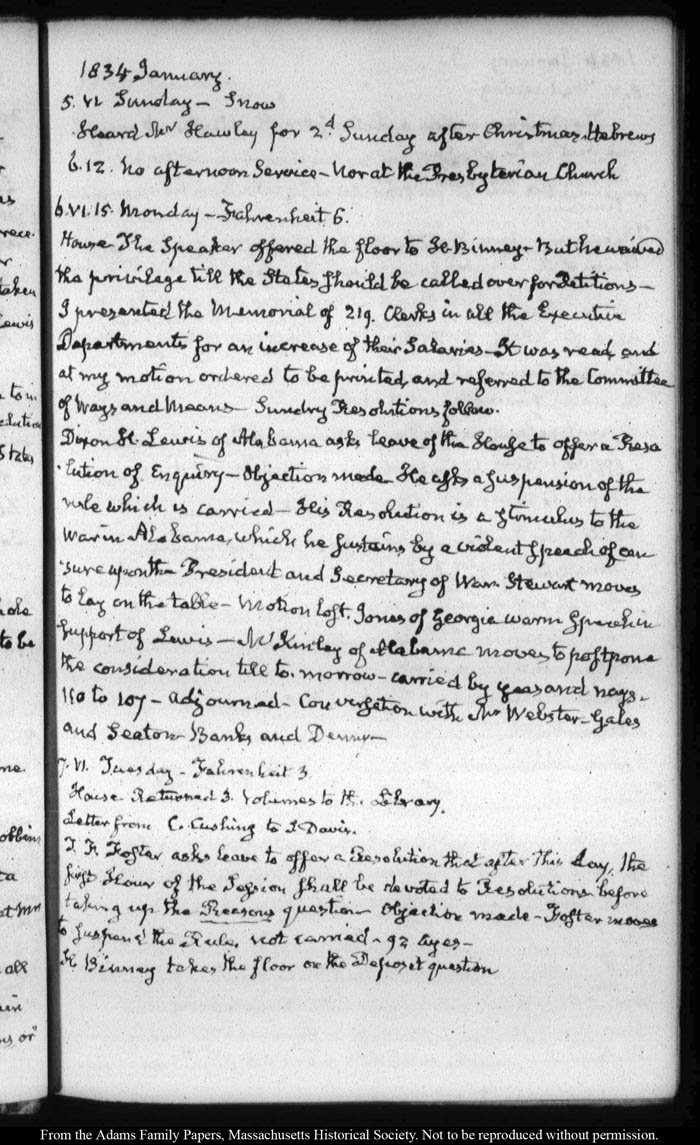 1834 January.
5. VI. Sunday – Snow
Heard Mr Hawley for 2d Sunday after Christmas. Hebrews
6.12. No afternoon Service – Nor at the Presbyterian Church
6. VI.15. Monday – Fahrenheit 6.
House. The Speaker offered the floor to H. Binney – But he waived
the privilege till the States should be called over for Petitions –
I presented the Memorial of 219. Clerks in all the Executive
Departments for an increase of their Salaries – It was read, and
at my motion ordered to be printed, and referred to the Committee
of Ways and Means – Sundry Resolutions follow.
Dixon H. Lewis of Alabama asks leave of the House to offer a Reso
lution of Enquiry – Objection made. He asks a suspension of the
rule which is carried – His Resolution is a stimulus to the
War in Alabama, which he sustains by a violent speech of cen
sure upon the President and Secretary of War. Stewart moves
to lay on the table – Motion lost. Jones of Georgia warm speech in
support of Lewis – McKinley of Alabama moves to postpone
the consideration till to-morrow – carried by yeas and nays.
110 to 107 – adjourned – Conversation with Mr Webster – Gales
and Seaton – Banks and Denny –
7. VI. Tuesday – Fahrenheit 3
House. Returned 3. Volumes to the Library.
Letter from C. Cushing to J Davis.
T. F. Foster asks leave to offer a Resolution that after this day, the
first Hour of the Session shall be devoted to Resolutions before
taking up the Reasons question – Objection made – Foster moves
to suspend the Rule, not carried – 92 ayes –
H. Binney takes the floor on the Deposit question
as
rece.
r
taken
Lewis
to in
olution
States
to be
me.
obbins
ta
at Mrs
all
ns or
From the Adams Family Papers, Massachusetts Historical Society. Not to be reproduced without permission.